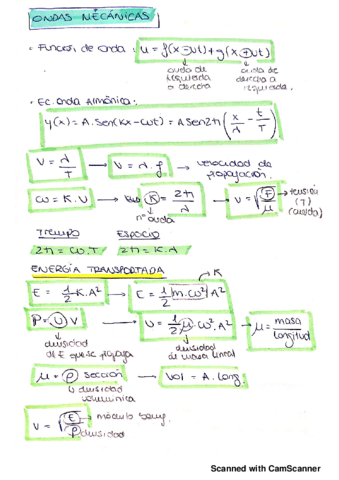 ONDAS MECÁNICAS
• Función de onda: u = f(x-vt) + g(x+vt)
onda de izquierda a derecha
onda de derecha a izquierda.
• Ec. Onda Armónica:
y(x) = A.Sen(Kx-ωt) = A Sen2π(x/λ - t/T)
V = λ/T → V = λ.f → velocidad de propagación.
ω = K.V → K = 2π/λ → V = √(F/μ) → tensión (T) (cuerda)
nº onda
Tiempo Espacio
2π = ω.T 2π = K.λ
ENERGÍA TRANSPORTADA
K
E = 1/2 K.A² → E = 1/2 m.ω² A²
P = U V → U = 1/2 μ.ω².A² → μ = masa/longitud
densidad de E que se propaga
densidad de masa lineal
μ = ρ sección → Vol = A.long.
↳ densidad volumínica
V = √(E/ρ) → módulo Young.
densidad
Scanned with CamScanner